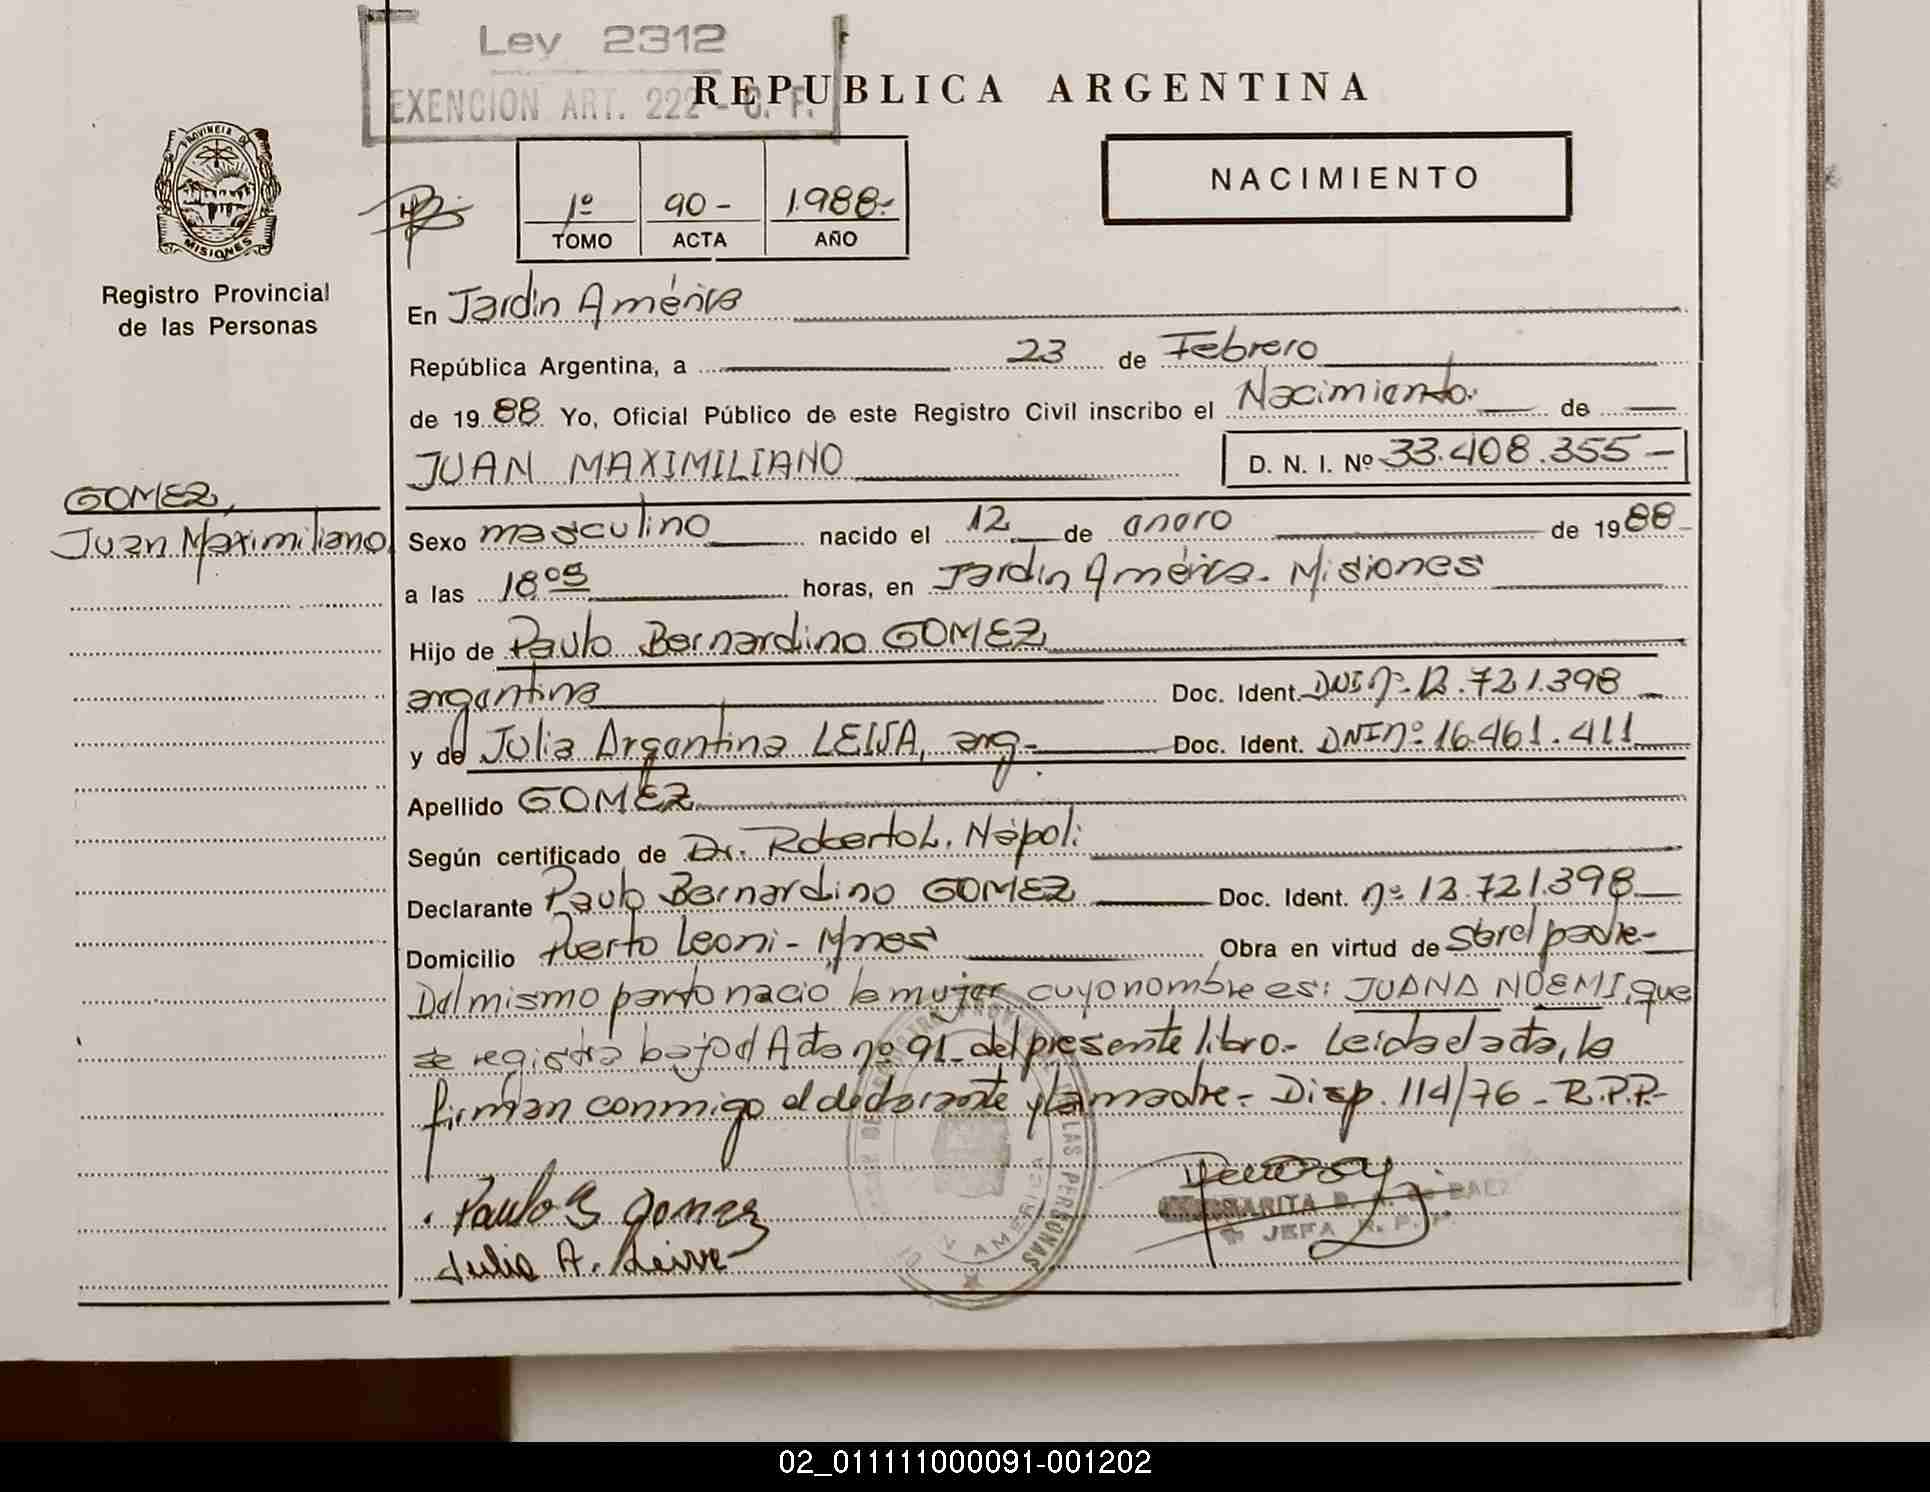 Ley 2312
EXENCION ART. 222 - C. F.
REPUBLICA ARGENTINA
PROVINCIA DE
MISIONES
1º 90 - 1.988.-
TOMO ACTA AÑO
NACIMIENTO
Registro Provincial
de las Personas
GOMEZ,
Juan Maximiliano
En Jardin América
República Argentina, a 23 de Febrero
de 19 88 Yo, Oficial Público de este Registro Civil inscribo el Nacimiento. de
JUAN MAXIMILIANO D. N. I. Nº 33.408.355 -
Sexo masculino nacido el 12 de enero de 19 88
a las 18 05 horas, en Jardin América - Misiones
Hijo de Paulo Bernardino GOMEZ
argentina Doc. Ident. DNI nº 12.721.398
y de Julia Argentina LEIVA, arg- Doc. Ident. DNI nº 16.461.411
Apellido GOMEZ
Según certificado de Dr. Roberto L. Nápoli
Declarante Paulo Bernardino GOMEZ Doc. Ident. nº 12.721.398
Domicilio Puerto Leoni - Mnes Obra en virtud de ser el padre -
Del mismo parto nació la mujer cuyo nombre es: JUANA NOEMI, que
se registra bajo el Acta nº 91 del presente libro.- Leida el acta, la
firman conmigo el declarante y la madre.- Disp. 114/76 - R.P.P.-
Paulo B Gomez
Julia A. Leiva
DE LAS PERSONAS
AMERICA
DE BAEZ
JEFA R. P. P.
02_011111000091-001202